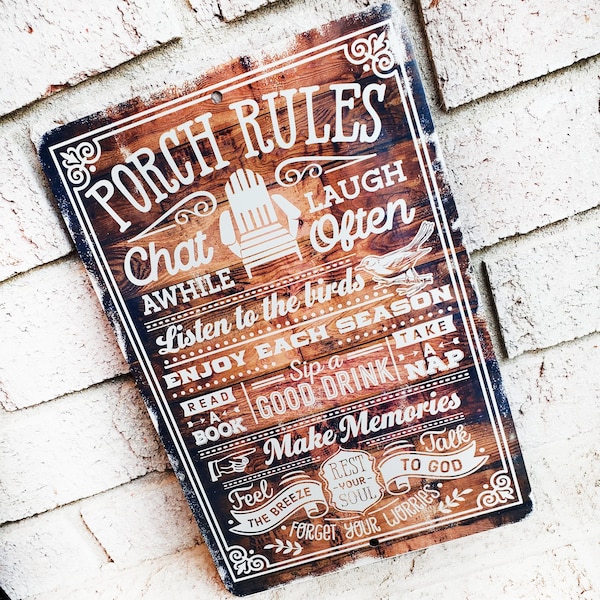 PORCH RULES
Chat AWHILE
LAUGH Often
Listen to the birds
ENJOY EACH SEASON
READ A BOOK
Sip a GOOD DRINK
TAKE A NAP
Make Memories
Feel THE BREEZE
REST YOUR SOUL
Talk TO GOD
FORGET YOUR WORRIES